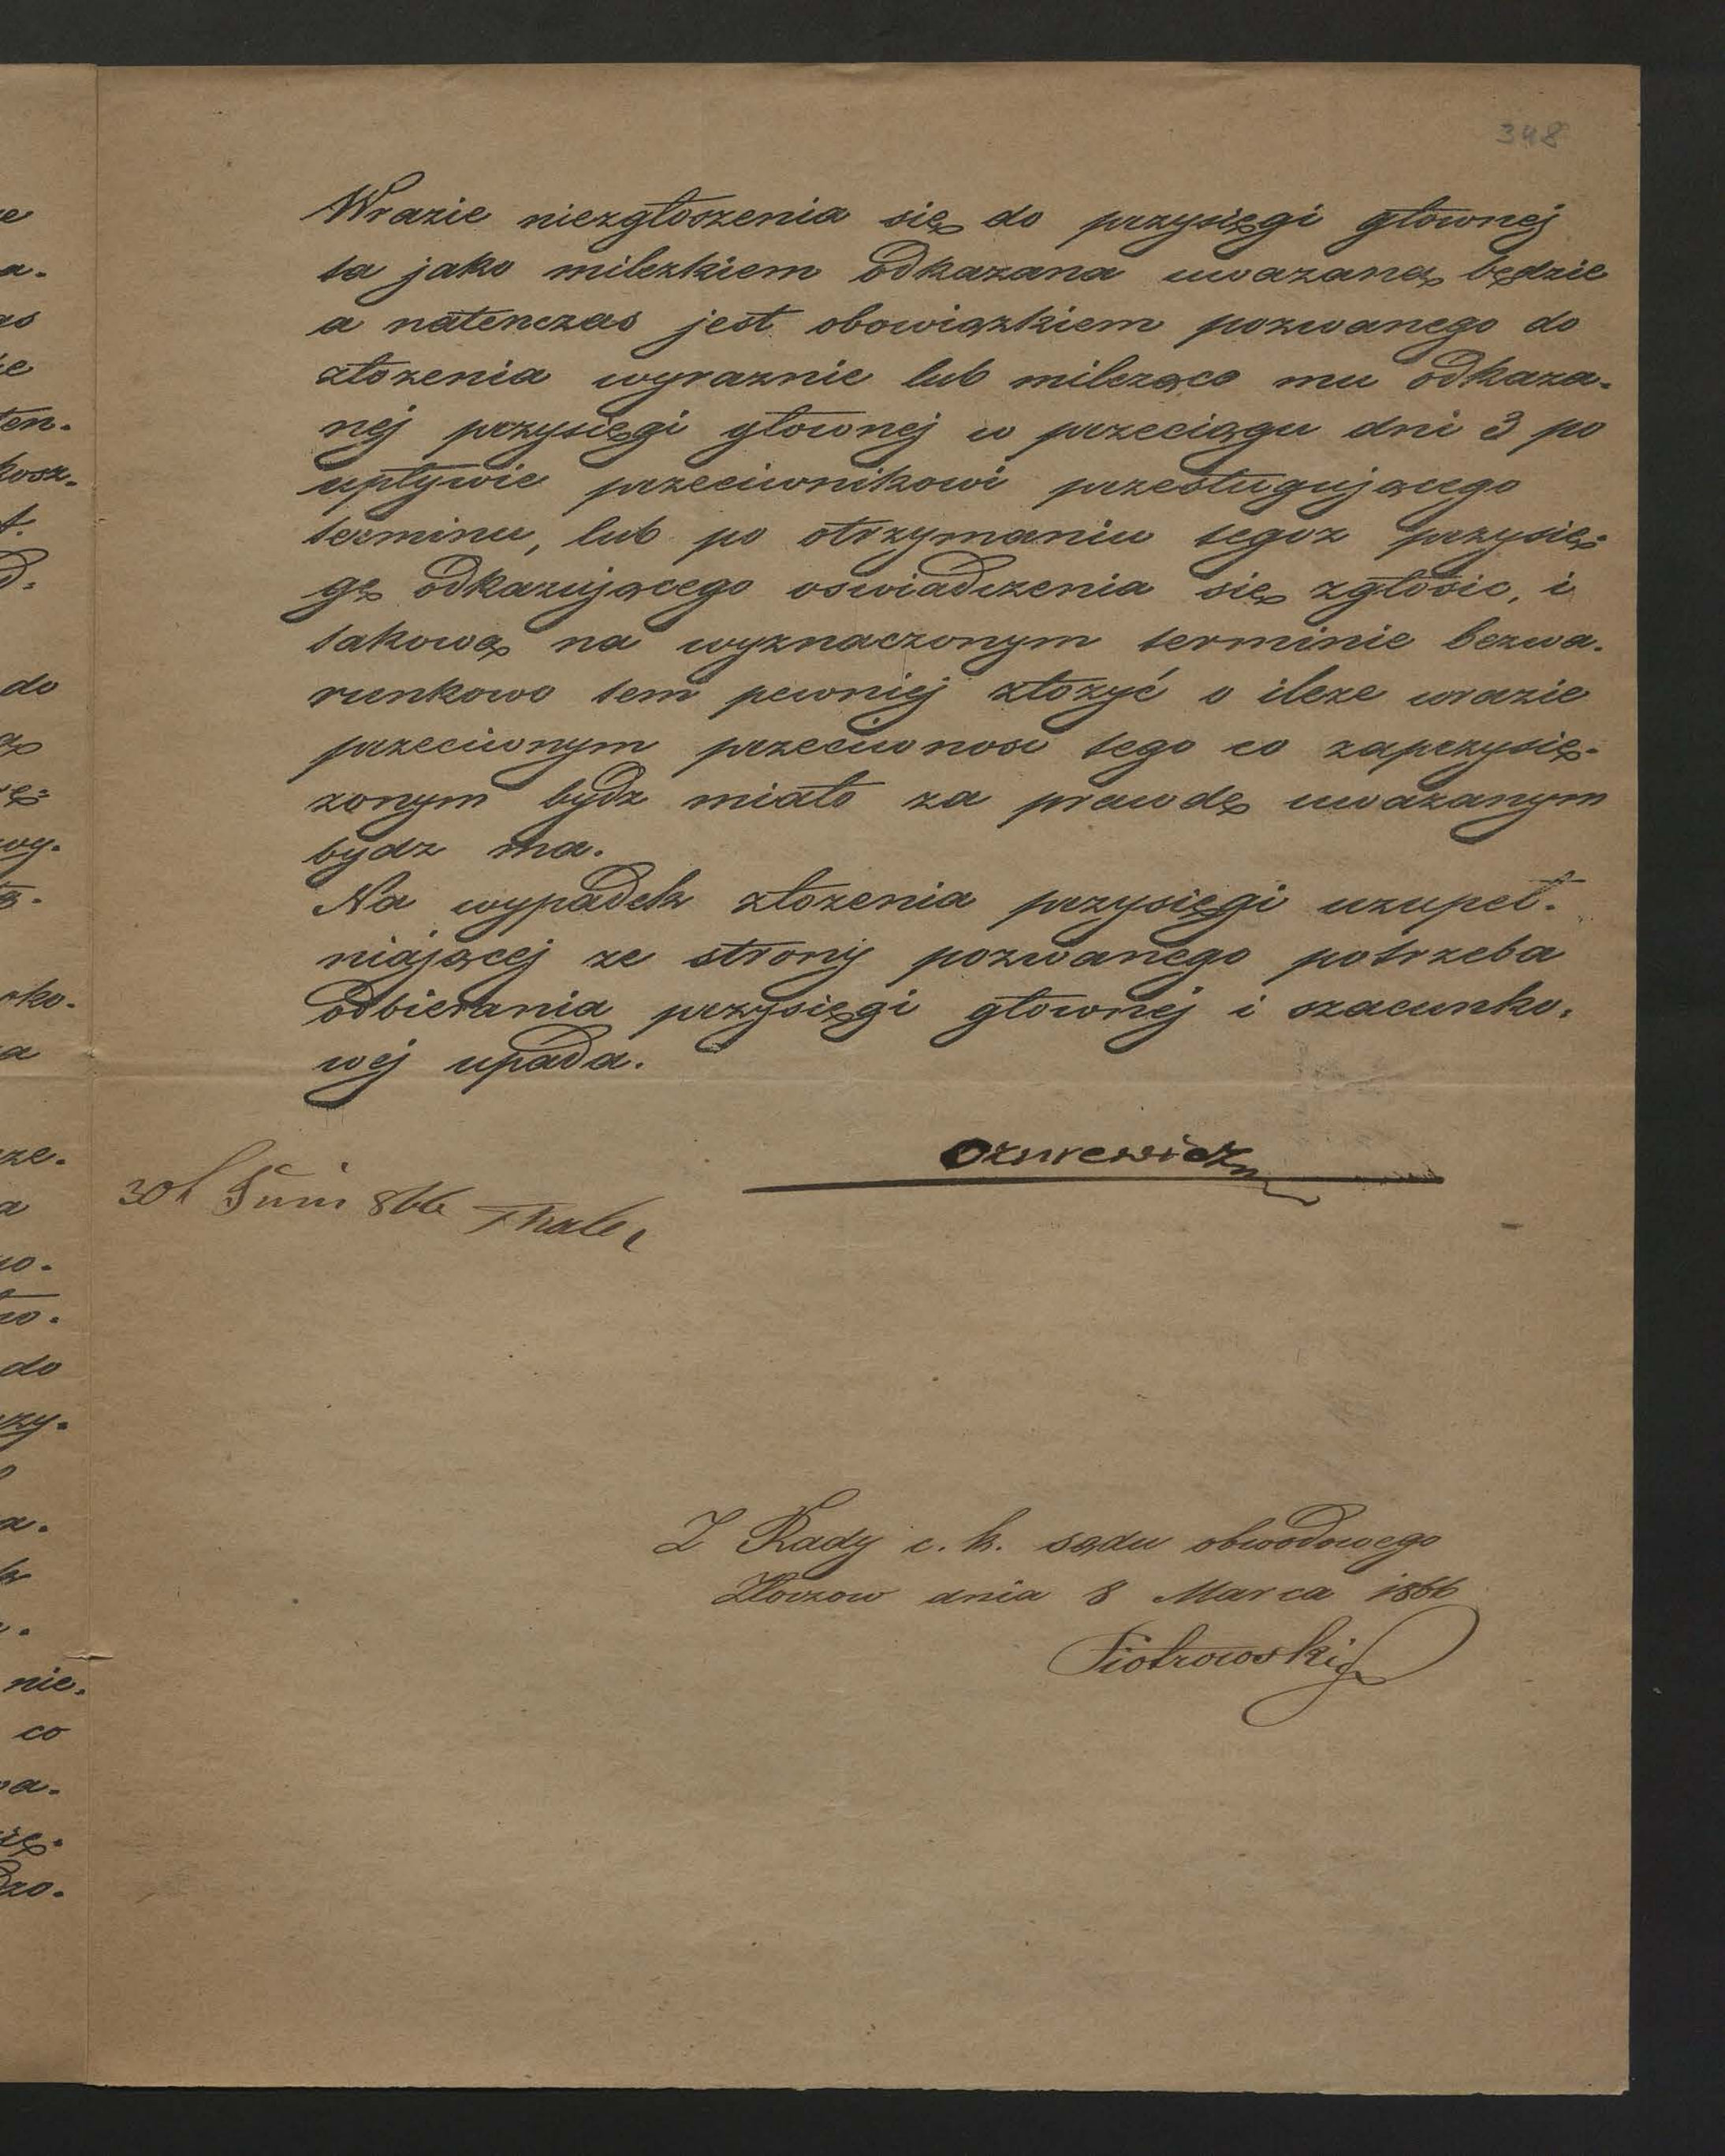 348
Wrazie niezgłoszenia się do przysięgi głownej
ta jako milczkiem odkazana uwazaną będzie
a natenczas jest obowiązkiem pozwanego do
złozenia wyraznie lub milcząco mu odkaza-
nej przysięgi głownej w przeciągu dni 3 po
upływie przeciwnikowi przesługującego
terminu, lub po otrzymaniu tegoz przysię-
gę odkazującego oswiadczenia się zgłosic, i
takową na wyznaczonym terminie bezwa-
runkowo tem pewniej złozyć o ileze wrazie
przeciwnym przeciwnosc tego co zaprzysię-
zonym bydz miało za prawdę uwazanym
bydz ma.
Na wypadek złozenia przysięgi uzupeł-
niającej ze strony pozwanego potrzeba
odbierania przysięgi głownej i szacunko-
wej upada.
Ozurewicz
30/ Juni 866 Thaler
Z Rady c. k. sądu obwodowego
Złoczow dnia 8 Marca 1866
Piotrowski
e
a.
as
ie
ten.
kosz.
t.
do
wy.
oko.
a
ze.
a
wo.
do
zy.
a.
k
nie.
co
wa.